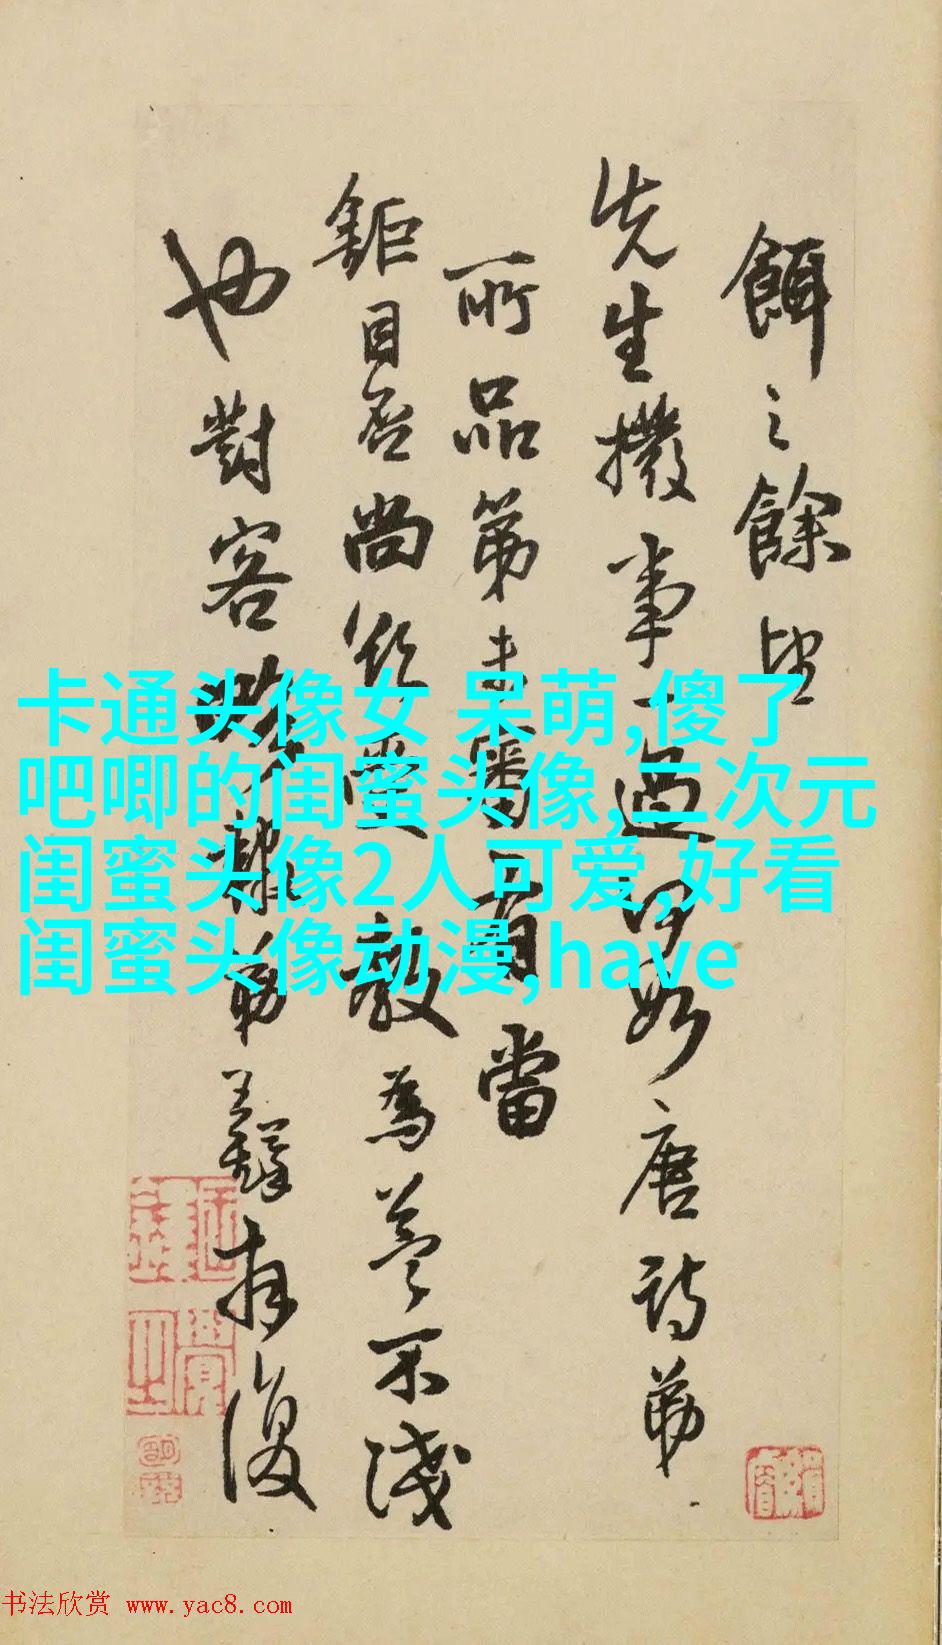 餌之餘望
先生撥事一過目如唐詩第
所品第未審有當
鉅目否尚終壹教為荷不淺
也對客草率
拜復
卡通头像女 呆萌,傻了
吧唧的闺蜜头像,二次元
闺蜜头像2人可爱,好看
闺蜜头像动漫,have
书法欣赏 www.yac8.com